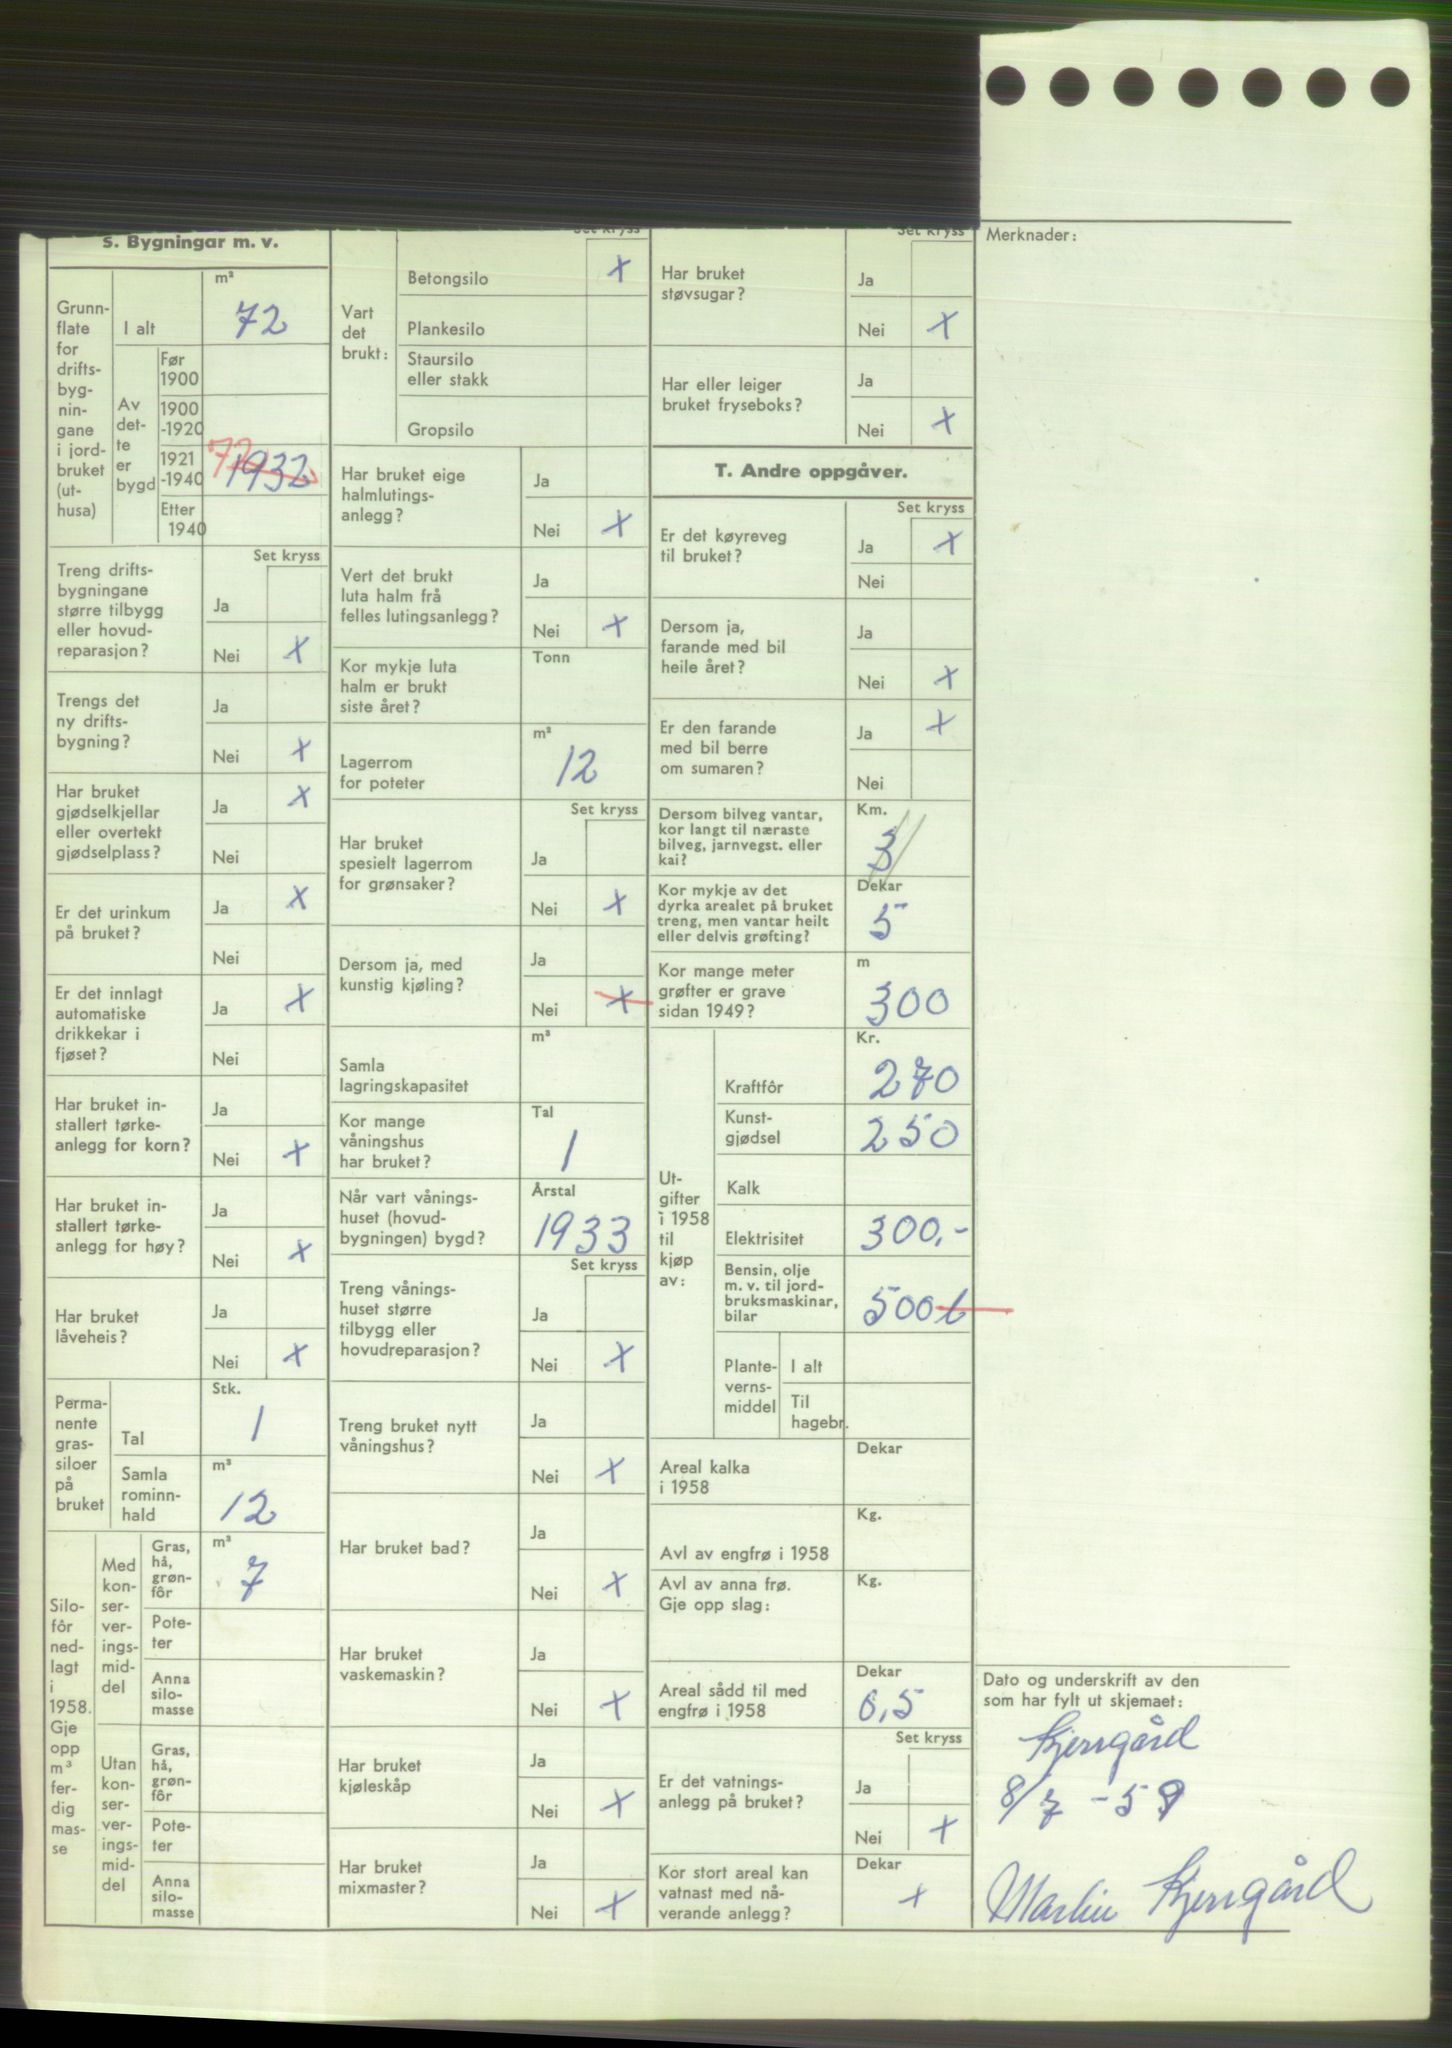 S. Bygningar m. v.
Grunn-
flate
for
drifts-
byg-
nin-
gane
i jord-
bruket
(ut-
husa)
I alt
m²
72
Av
det-
te
er
bygd
Før
1900
1900
-1920
1921
-1940
72
1932
Etter
1940
Set kryss
Treng drifts-
bygningane
større tilbygg
eller hovud-
reparasjon?
Ja
Nei X
Trengs det
ny drifts-
bygning?
Ja
Nei X
Har bruket
gjødselkjellar
eller overtekt
gjødselplass?
Ja X
Nei
Er det urinkum
på bruket?
Ja X
Nei
Er det innlagt
automatiske
drikkekar i
fjøset?
Ja X
Nei
Har bruket in-
stallert tørke-
anlegg for korn?
Ja
Nei X
Har bruket in-
stallert tørke-
anlegg for høy?
Ja
Nei X
Har bruket
låveheis?
Ja
Nei X
Perma-
nente
gras-
siloer
på
bruket
Tal
Stk.
1
Samla
rominn-
hald
m³
12
Silo-
fôr
ned-
lagt
i
1958.
Gje
opp
m³
fer-
dig
mas-
se
Med
kon-
ser-
ver-
ings-
mid-
del
Gras,
hå,
grøn-
fôr
m³
7
Pote-
ter
Anna
silo-
masse
Utan
kon-
ser-
ver-
ings-
mid-
del
Gras,
hå,
grøn-
fôr
Pote-
ter
Anna
silo-
masse
Set kryss
Vart
det
brukt:
Betongsilo X
Plankesilo
Staursilo
eller stakk
Gropsilo
Har bruket eige
halmlutings-
anlegg?
Ja
Nei X
Vert det brukt
luta halm frå
felles lutingsanlegg?
Ja
Nei X
Kor mykje luta
halm er brukt
siste året?
Tonn
Lagerrom
for poteter
m³
12
Set kryss
Har bruket
spesielt lagerrom
for grønsaker?
Ja
Nei X
Dersom ja, med
kunstig kjøling?
Ja
Nei X
Samla
lagringskapasitet
m³
Kor mange
våningshus
har bruket?
Tal
1
Når vart vånings-
huset (hovud-
bygningen) bygd?
Årstal
1933
Set kryss
Treng vånings-
huset større
tilbygg eller
hovudreparasjon?
Ja
Nei X
Treng bruket nytt
våningshus?
Ja
Nei X
Har bruket bad?
Ja
Nei X
Har bruket
vaskemaskin?
Ja
Nei X
Har bruket
kjøleskåp
Ja
Nei X
Har bruket
mixmaster?
Ja
Nei X
Set kryss
Har bruket
støvsugar?
Ja
Nei X
Har eller leiger
bruket fryseboks?
Ja
Nei X
T. Andre oppgåver.
Set kryss
Er det køyreveg
til bruket?
Ja X
Nei
Dersom ja,
farande med bil
heile året?
Ja
Nei X
Er den farande
med bil berre
om sumaren?
Ja X
Nei
Dersom bilveg vantar,
kor langt til næraste
bilveg, jarnvegst. eller
kai?
Km.
3
Kor mykje av det
dyrka arealet på bruket
treng, men vantar heilt
eller delvis grøfting?
Dekar
5
Kor mange meter
grøfter er grave
sidan 1949?
m
300
Ut-
gifter
i 1958
til
kjøp
av:
Kr.
Kraftfôr 270
Kunst-
gjødsel 250
Kalk
Elektrisitet 300,-
Bensin, olje
m. v. til jord-
bruksmaskinar,
bilar
500 l
Plante-
verns-
middel
I alt
Til
hagebr.
Areal kalka
i 1958
Dekar
Avl av engfrø i 1958
Kg.
Avl av anna frø.
Gje opp slag:
Kg.
Areal sådd til med
engfrø i 1958
Dekar
0,5
Set kryss
Er det vatnings-
anlegg på bruket?
Ja
Nei X
Kor stort areal kan
vatnast med nå-
verande anlegg?
Dekar
X
Merknader:
Dato og underskrift av den
som har fylt ut skjemaet:
Kjerrgård
8/7 - 59
Martin Kjerrgård